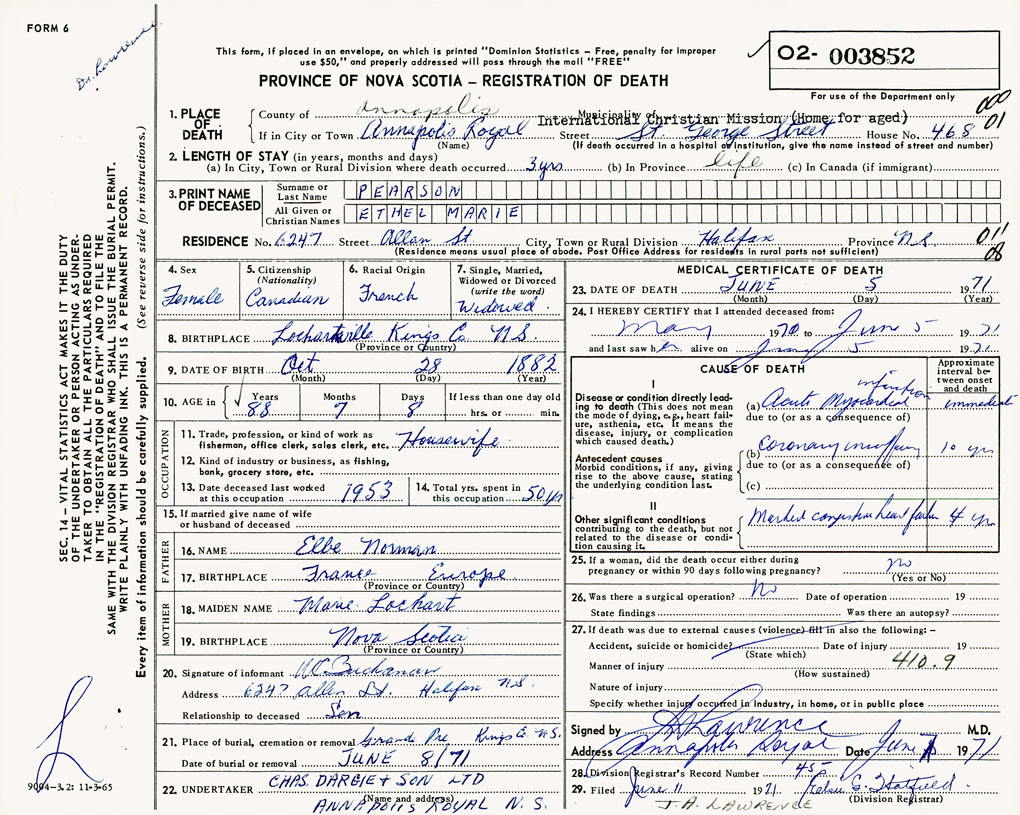 FORM 6
Dr. Lawrence
This form, if placed in an envelope, on which is printed "Dominion Statistics – Free, penalty for improper
use $50," and properly addressed will pass through the mail "FREE"
PROVINCE OF NOVA SCOTIA – REGISTRATION OF DEATH
02- 003852
For use of the Department only
000
01
SEC. 14 – VITAL STATISTICS ACT MAKES IT THE DUTY
OF THE UNDERTAKER OR PERSON ACTING AS UNDER-
TAKER TO OBTAIN ALL THE PARTICULARS REQUIRED
IN THE "REGISTRATION OF DEATH" AND TO FILE THE
SAME WITH THE DIVISION REGISTRAR WHO SHALL ISSUE THE BURIAL PERMIT.
WRITE PLAINLY WITH UNFADING INK. THIS IS A PERMANENT RECORD.
Every item of information should be carefully supplied. (See reverse side for instructions.)
1. PLACE OF DEATH
County of Annapolis Municipality of
International Christian Mission (Home for aged)
If in City or Town Annapolis Royal Street St George Street House No. 468
(Name) (If death occurred in a hospital or institution, give the name instead of street and number)
2. LENGTH OF STAY (in years, months and days)
(a) In City, Town or Rural Division where death occurred 3 yrs (b) In Province life (c) In Canada (if immigrant)
3. PRINT NAME OF DECEASED
Surname or Last Name PEARSON
All Given or Christian Names ETHEL MARIE
RESIDENCE No. 6247 Street Allan St City, Town or Rural Division Halifax Province N S
(Residence means usual place of abode. Post Office Address for residents in rural parts not sufficient)
011
08
4. Sex Female
5. Citizenship (Nationality) Canadian
6. Racial Origin French
7. Single, Married, Widowed or Divorced (write the word) Widowed
8. BIRTHPLACE Lochartville Kings Co. N.S.
(Province or Country)
9. DATE OF BIRTH Oct 28 1882
(Month) (Day) (Year)
10. AGE in Years 88 Months 7 Days 8 If less than one day old
hrs. or min.
OCCUPATION
11. Trade, profession, or kind of work as
fisherman, office clerk, etc. Housewife
12. Kind of industry or business, as fishing,
bank, grocery store, etc.
13. Date deceased last worked
at this occupation 1953
14. Total yrs. spent in
this occupation 50 yr
15. If married give name of wife
or husband of deceased
FATHER
16. NAME Elbe Norman
17. BIRTHPLACE France Europe
(Province or Country)
MOTHER
18. MAIDEN NAME Marie Lochart
19. BIRTHPLACE Nova Scotia
(Province or Country)
20. Signature of informant W.C. Buchanan
Address 6247 Allen St. Halifax N.S.
Relationship to deceased Son
21. Place of burial, cremation or removal Grande Pre Kings Co. N.S.
Date of burial or removal JUNE 8/71
22. UNDERTAKER CHAS. DARGIE + SON LTD
(Name and address)
ANNAPOLIS ROYAL N.S.
9004-3.2: 11-3-65
MEDICAL CERTIFICATE OF DEATH
23. DATE OF DEATH JUNE 5 1971
(Month) (Day) (Year)
24. I HEREBY CERTIFY that I attended deceased from:
May 1970 to June 5 1971
and last saw her alive on June 5 1971
CAUSE OF DEATH
Approximate interval between onset and death
I
Disease or condition directly leading to death (This does not
mean the mode of dying, e.g., heart failure, asthenia, etc. It means the
disease, injury, or complication which caused death.)
(a) Acute Myocardial infarction immediate
due to (or as a consequence of)
Antecedent causes
Morbid conditions, if any, giving
rise to the above cause, stating
the underlying condition last.
(b) Coronary insufficiency 10 yrs
due to (or as a consequence of)
(c)
II
Other significant conditions
contributing to the death, but not
related to the disease or condition causing it.
Marked congestive heart failure 4 yrs
25. If a woman, did the death occur either during
pregnancy or within 90 days following pregnancy? no
(Yes or No)
26. Was there a surgical operation? No Date of operation 19
State findings Was there an autopsy?
27. If death was due to external causes (violence) fill in also the following: –
Accident, suicide or homicide? Date of injury 19
(State which)
410.9
Manner of injury
(How sustained)
Nature of injury
Specify whether injury occurred in industry, in home, or in public place
Signed by Lawrence M.D.
Address Annapolis Royal Date June 1971
28. Division Registrar's Record Number 45A
29. Filed June 11 1971
(Division Registrar)
J.A. LAWRENCE